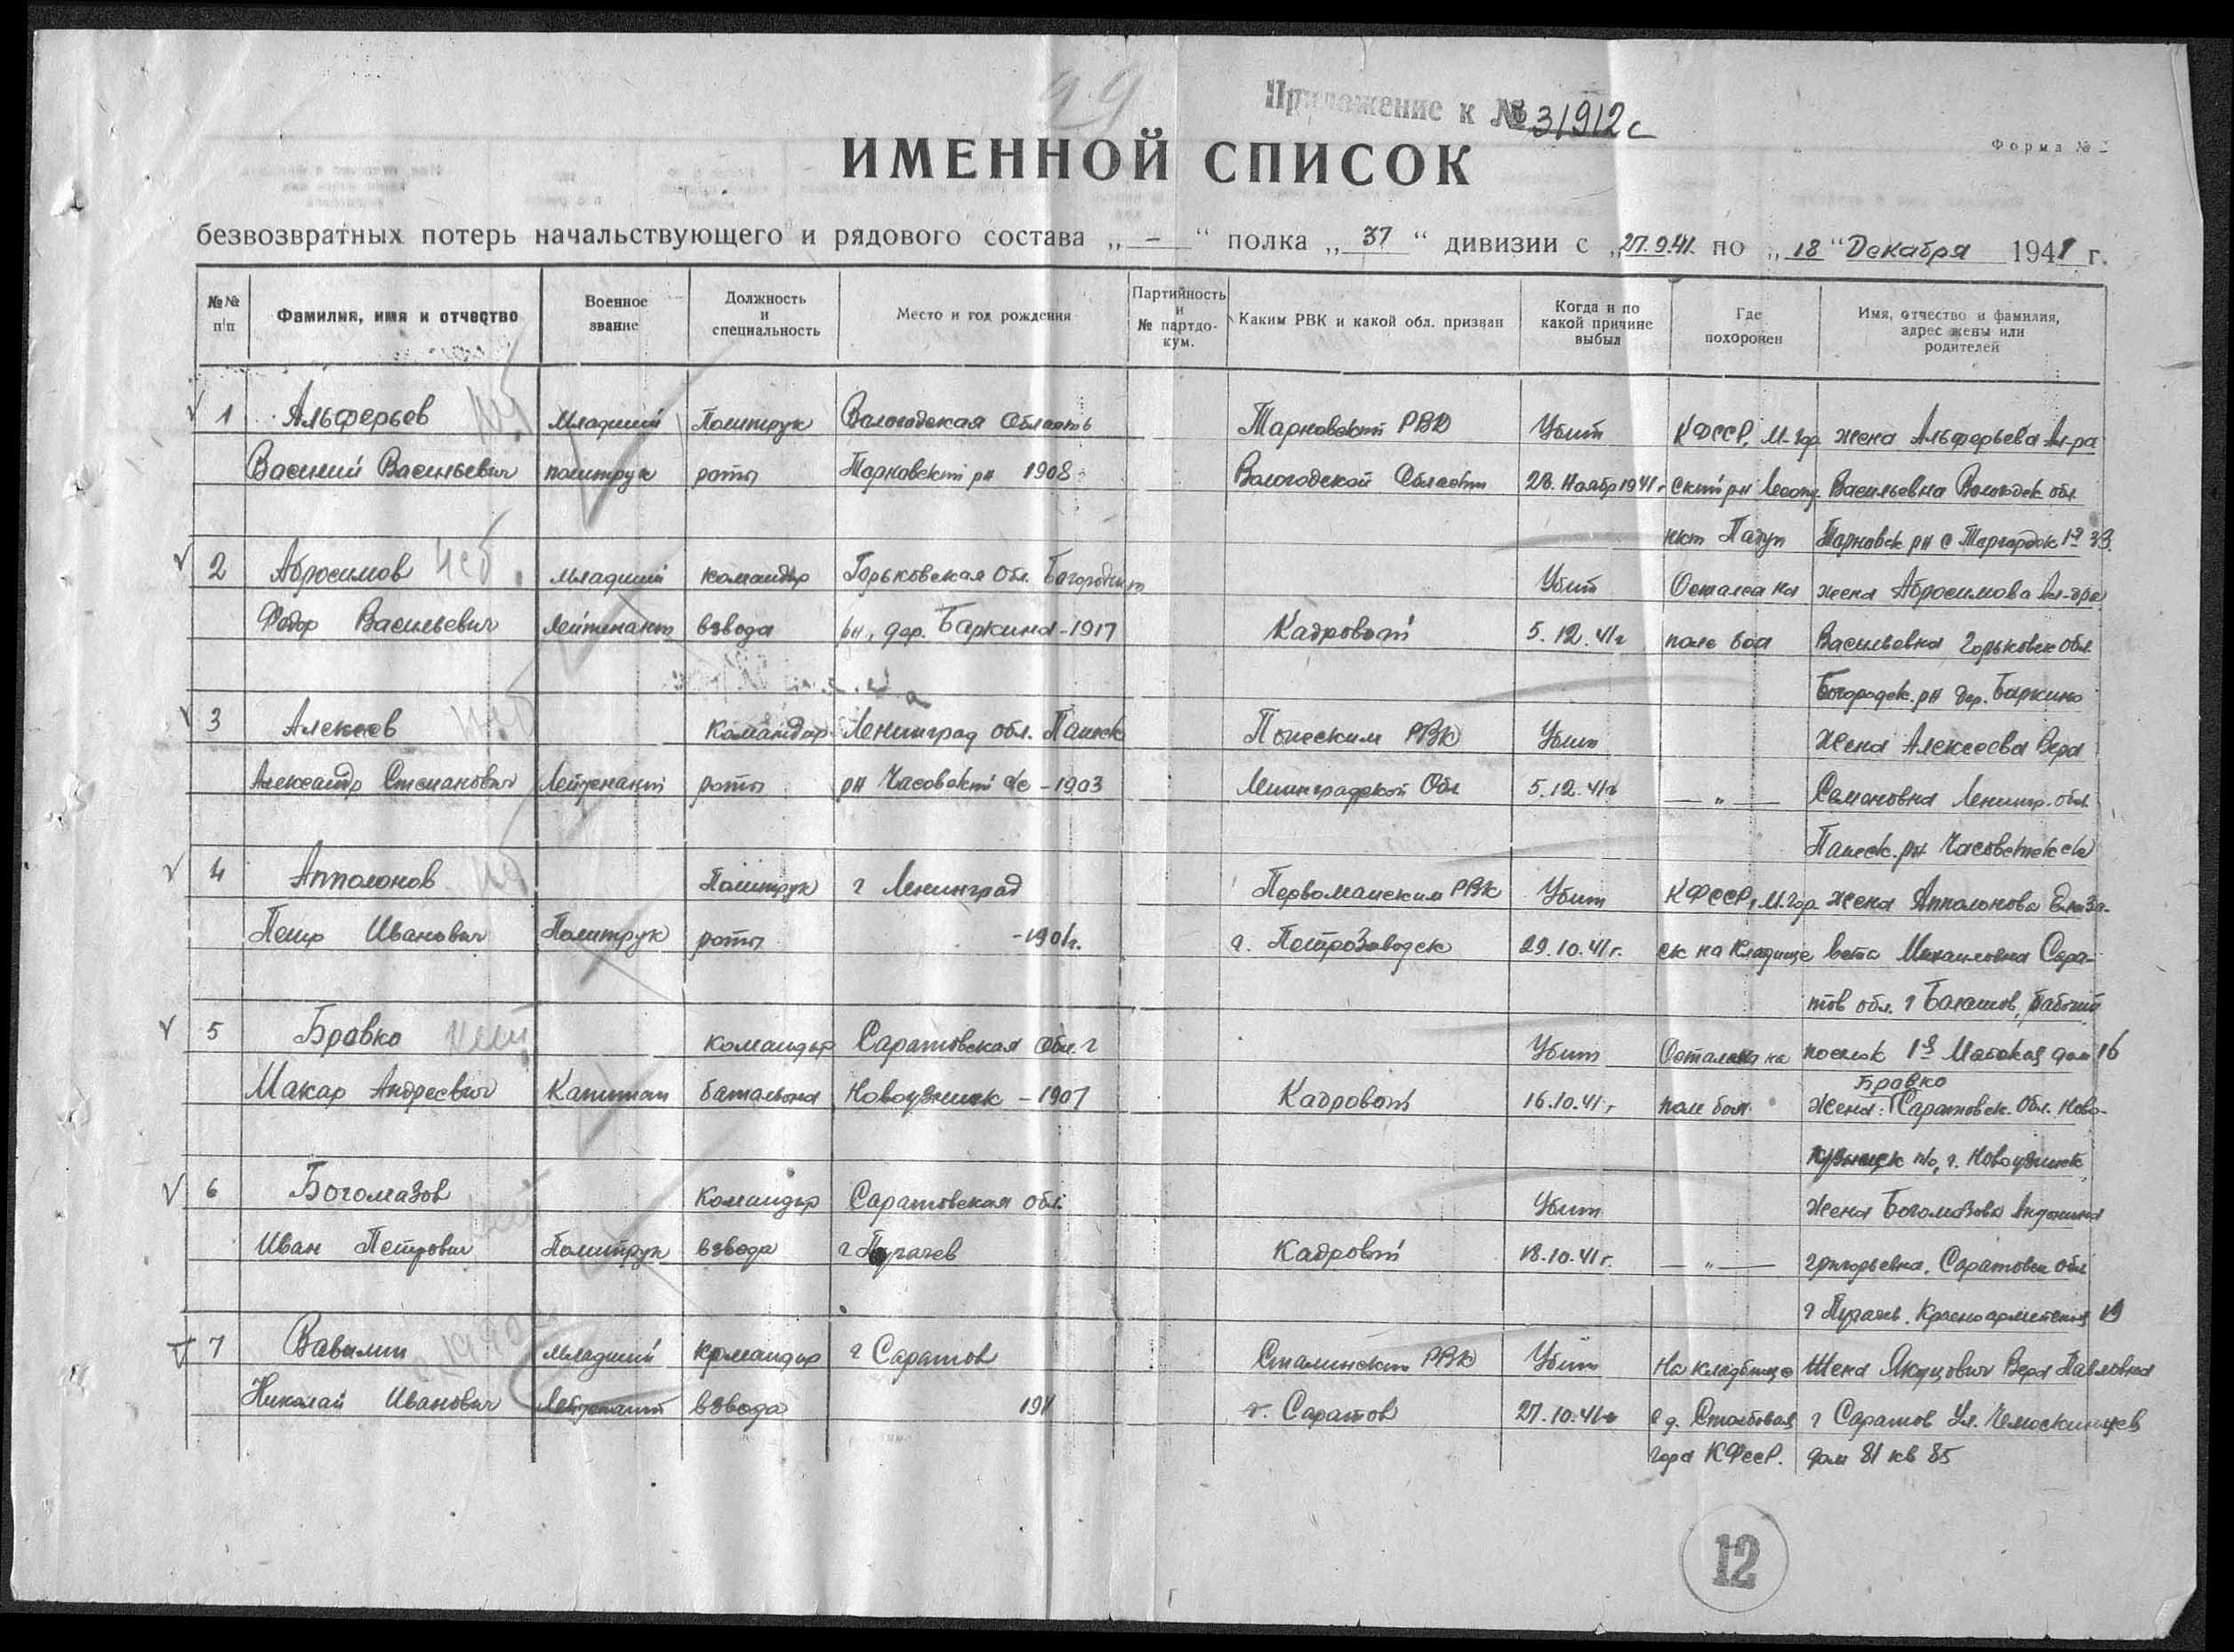 99
Приложение к № 31912с
Форма № 2
ИМЕННОЙ СПИСОК
безвозвратных потерь начальствующего и рядового состава „ - “ полка „ 37 “ дивизии с „27.9.41. по „ 18 “ Декабря 1941 г.
№№ п/п
Фамилия, имя и отчество
Военное звание
Должность и специальность
Место и год рождения
Партийность и № партдокум.
Каким РВК и какой обл. призван
Когда и по какой причине выбыл
Где похоронен
Имя, отчество и фамилия, адрес жены или родителей
1 Альферьев Младший Политрук Вологодская Область Тарновский РВК Убит КФССР, М-гор жена Альферьева Ал-ра
Василий Васильевич политрук роты Тарновский рн 1908 Вологодской Области 28. Ноябр 1941г ский рн Васильевна Вологодск обл.
пкт Падун Тарновск рн с
2 Абросимов Младший командир Горьковская Обл. Богородский Убит Остался на жена Абросимова Ал-дра
Федор Васильевич Лейтенант взвода рн, дер. Баркина - 1917 Кадровый 5.12.41г поле боя Васильевна Горьковск Обл.
Богородск. рн дер. Баркино
3 Алексеев Командир Ленинград обл. РВК Убит Жена Алексеева Вера
Александр Степанович Лейтенант роты рн Часовский с/с - 1903 Ленинградской Обл 5.12.41г — " — Семеновна Ленингр. обл.
рн
4 Апполонов Политрук г Ленинград Первомайским РВК Убит КФССР, М.Гор Жена Апполонова Елиза-
Петр Иванович Политрук роты - 1901г. г. Петрозаводск 29.10.41г. ск на кладище вета Михаиловна Сара-
тов обл. г Балашов, рабочий
5 Бравко командир Саратовская обл. г Убит Остался на поселок дом 16
Бравко
Макар Андреевич Капитан батальона Новоузенск - 1907 Кадровый 16.10.41г поле боя. Жена: Саратовск. Обл. Ново-
п/о, г. Новоузенск
6 Богомазов Командир Саратовская обл. Убит Жена Богомазова Антонина
Иван Петрович Политрук взвода г Пугачев Кадровый 18.10.41г. — " — григорьевна. Саратовск обл
г Пугачев. Красноармейская 19
7 Вавилин Младший Командир г Саратов Сталинским РВК Убит На кладбище Жена Якуцович Вера Павловна
Николай Иванович Лейтенант взвода 191 г. Саратов 27.10.41г д. Столбовая г Саратов Ул. Челюскинцев
гора КФССР. дом 81 кв 85
12